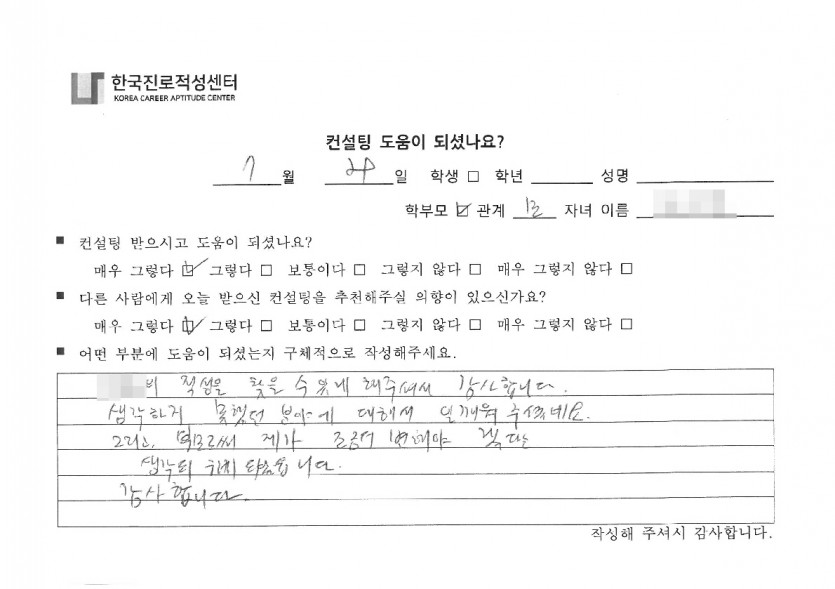 한국진로적성센터
KOREA CAREER APTITUDE CENTER
컨설팅 도움이 되셨나요?
7 월 24 일 학생 □ 학년 성명
학부모 ☑ 관계 모 자녀 이름
■ 컨설팅 받으시고 도움이 되셨나요?
매우 그렇다 ☑ 그렇다 □ 보통이다 □ 그렇지 않다 □ 매우 그렇지 않다 □
■ 다른 사람에게 오늘 받으신 컨설팅을 추천해주실 의향이 있으신가요?
매우 그렇다 ☑ 그렇다 □ 보통이다 □ 그렇지 않다 □ 매우 그렇지 않다 □
■ 어떤 부분에 도움이 되셨는지 구체적으로 작성해주세요.
적성을 찾을 수 있게 해주셔서 감사합니다.
생각하지 못했던 분야에 대해서 일깨워 주셨네요.
그리고, 부모로써 제가 조금더 변해야 겠다는
생각의 됩니다.
감사합니다.
작성해 주셔서 감사합니다.